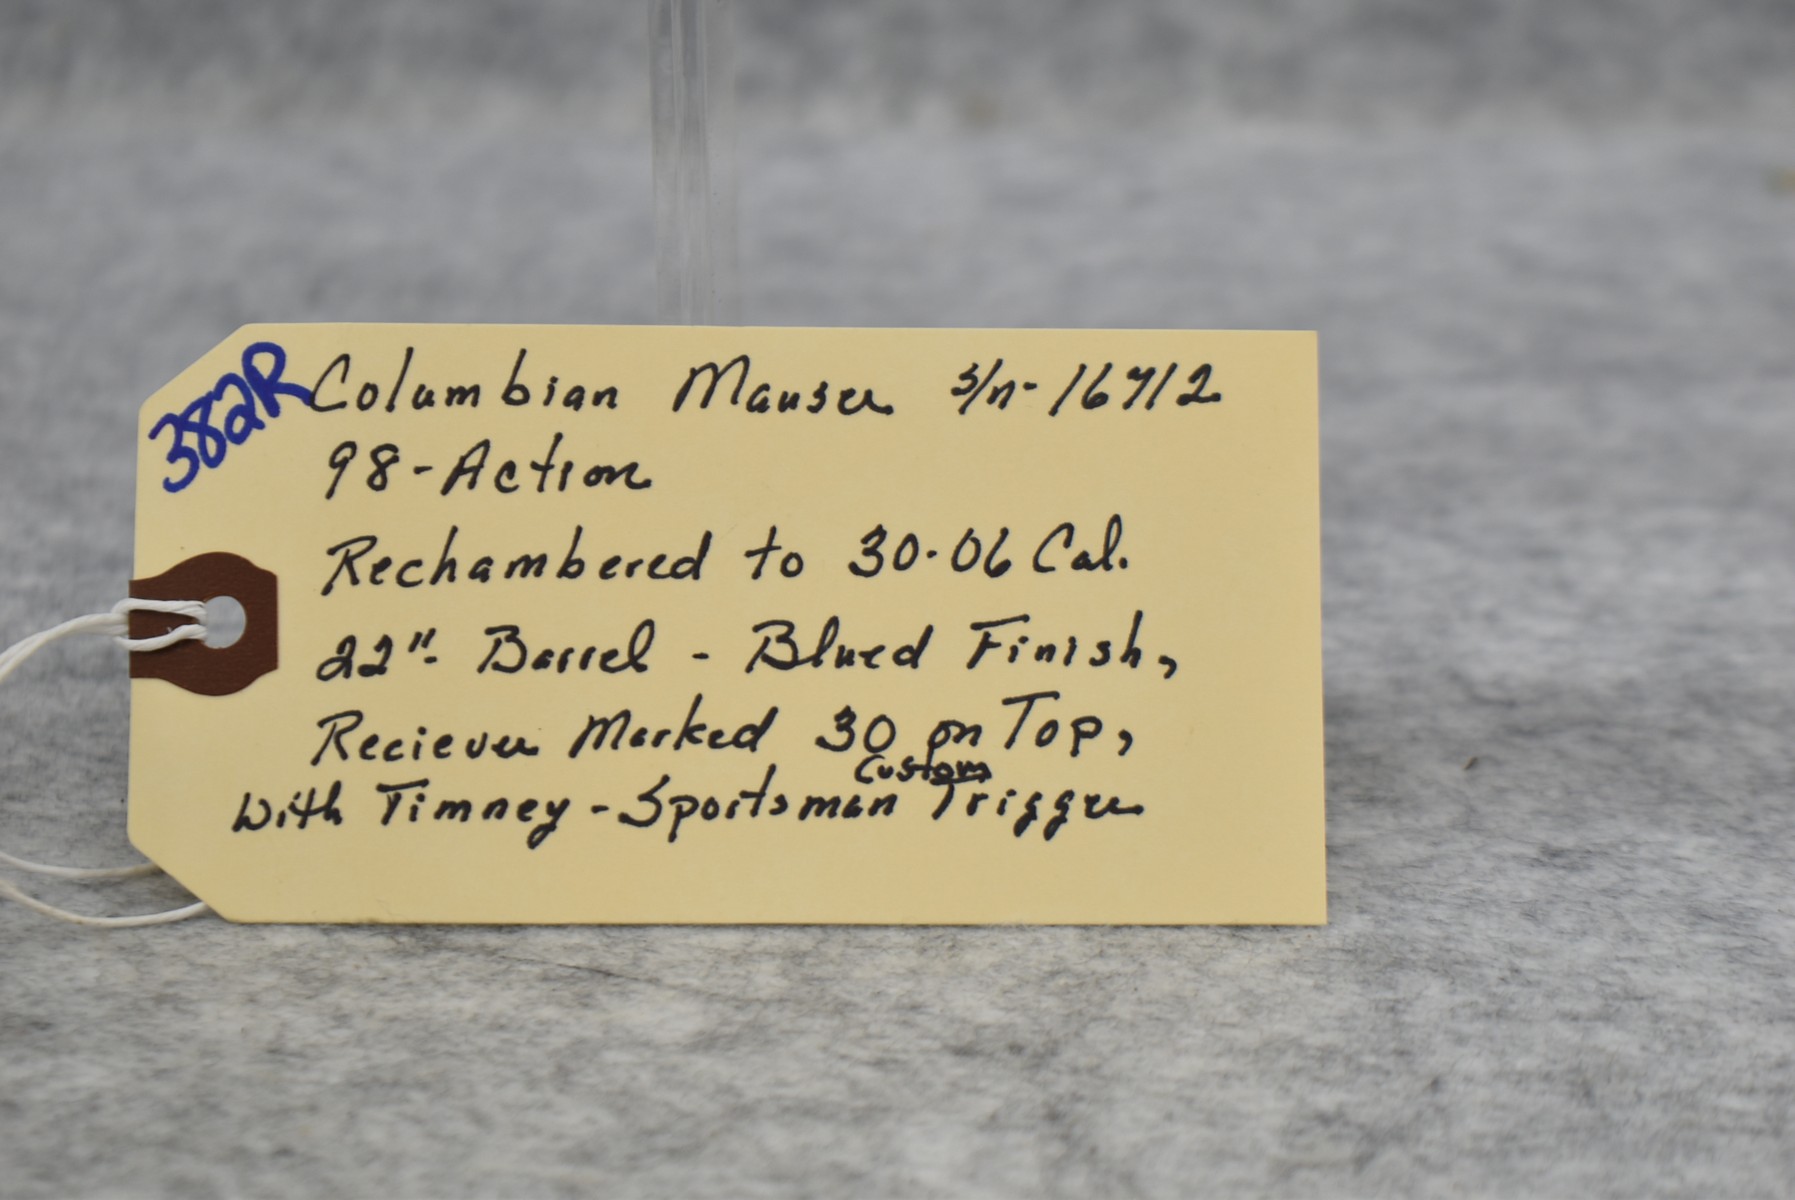 382R
Columbian Mauser s/n- 16712
98-Action
Rechambered to 30-06 Cal.
22"- Barrel - Blued Finish,
Reciever Marked 30 on Top,
Custom
With Timney - Sportsman Trigger